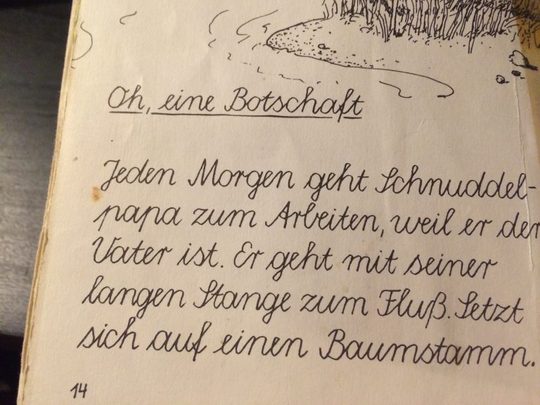 Oh, eine Botschaft
Jeden Morgen geht Schnuddel-
papa zum Arbeiten, weil er der
Vater ist. Er geht mit seiner
langen Stange zum Fluß. Setzt
sich auf einen Baumstamm.
14